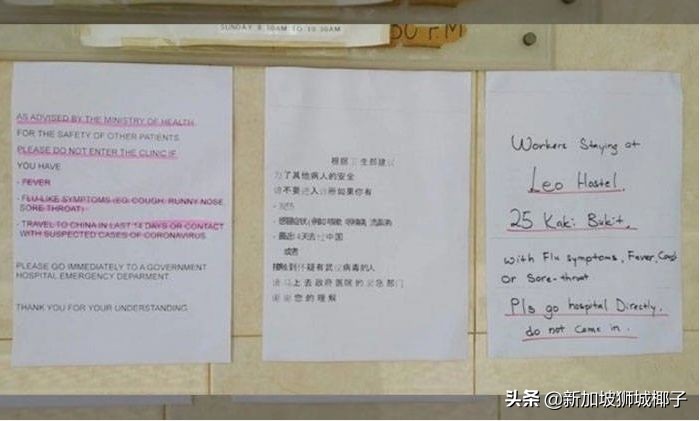 SUNDAY 8.30AM TO 10.30AM
30 P.M
AS ADVISED BY THE MINISTRY OF HEALTH
FOR THE SAFETY OF OTHER PATIENTS
PLEASE DO NOT ENTER THE CLINIC IF
YOU HAVE
- FEVER
- FLU-LIKE SYMPTOMS (EG. COUGH, RUNNY NOSE,
SORE THROAT)
- TRAVEL TO CHINA IN LAST 14 DAYS OR CONTACT
WITH SUSPECTED CASES OF CORONAVIRUS
PLEASE GO IMMEDIATELY TO A GOVERNMENT
HOSPITAL EMERGENCY DEPARMENT
THANK YOU FOR YOUR UNDERSTANDING
根据卫生部建议
为了其他病人的安全
请不要进入诊所如果你有
- 发烧
- 感冒症状
- 最近 14天去过中国
或者
接触到怀疑有武汉病毒的人
请马上去政府医院的紧急部门
谢谢您的理解
Workers Staying at
Leo Hostel.
25 Kaki Bukit.
with Flu symptoms, Fever,
or Sore-throat
Pls go hospital Directly.
do not come in.
头条 @新加坡狮城椰子